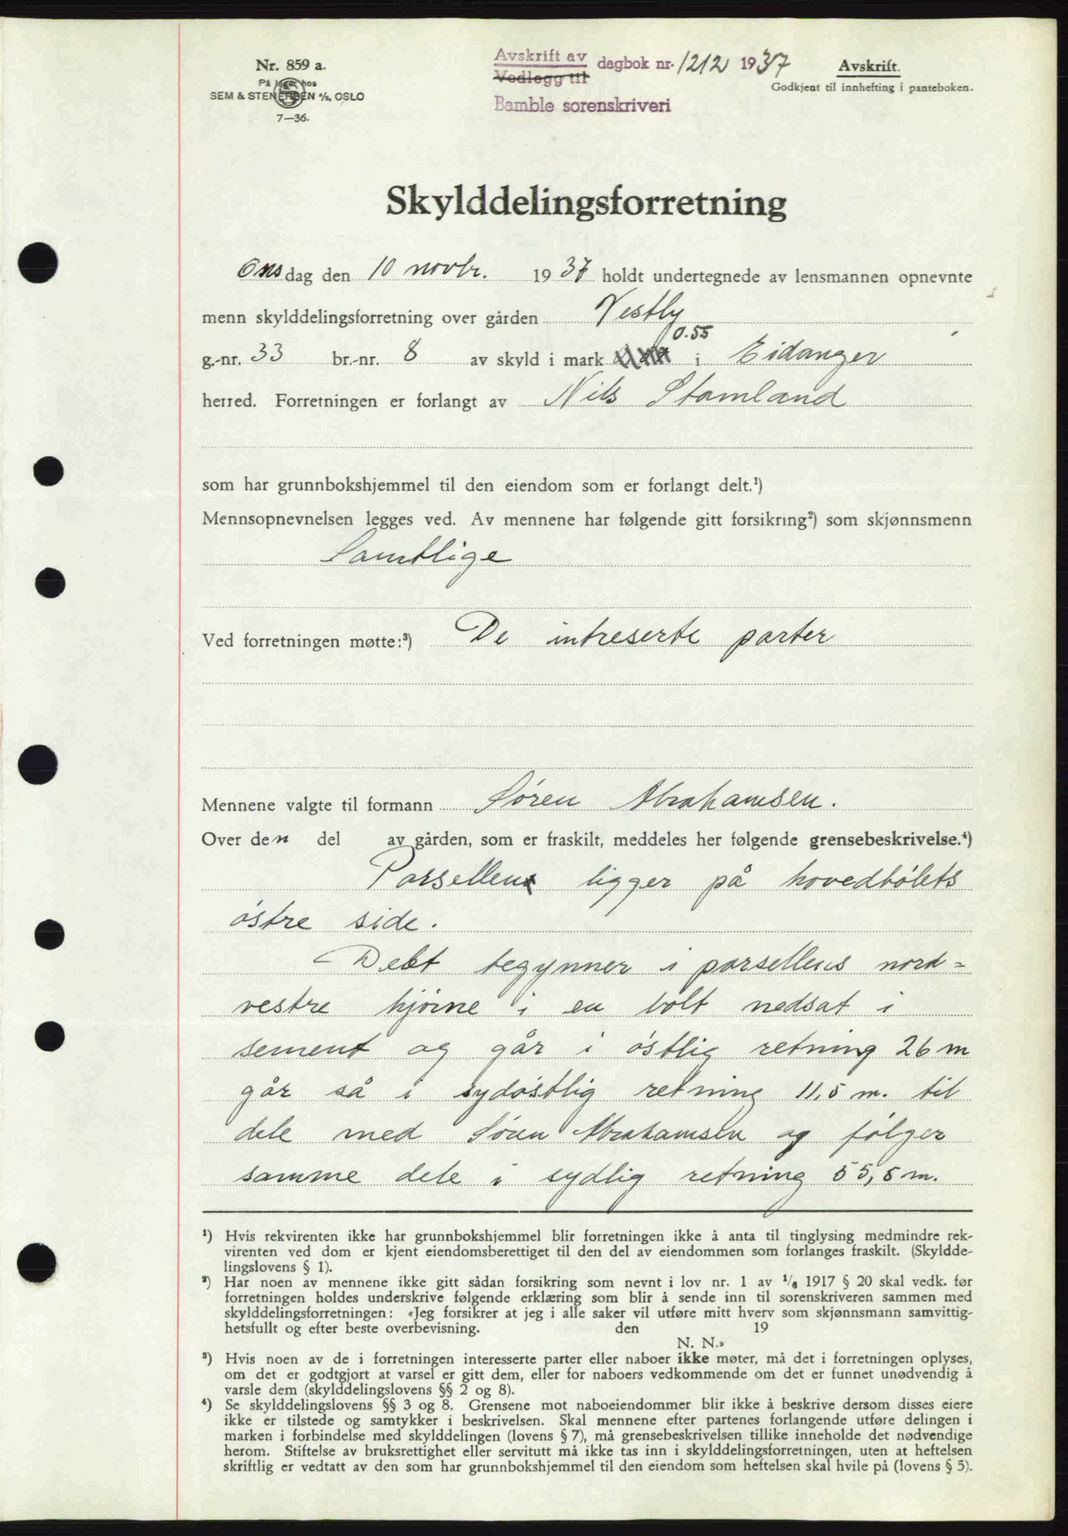 Nr. 859 a.
På lager hos
SEM & STENERSEN A/S, OSLO
7—36.
Avskrift av
Vedlegg til
dagbok nr. 1212 1937
Bamble sorenskriveri
Avskrift.
Godkjent til innhefting i panteboken.
Skylddelingsforretning
Onsdag den 10 novbr. 1937 holdt undertegnede av lensmannen opnevnte
menn skylddelingsforretning over gården Vestly
g.-nr. 33 br.-nr. 8 av skyld i mark 0.55 i Eidanger
herred. Forretningen er forlangt av Nils Stamland
som har grunnbokshjemmel til den eiendom som er forlangt delt.¹)
Mennsopnevnelsen legges ved. Av mennene har følgende gitt forsikring²) som skjønnsmenn
Samtlige
Ved forretningen møtte:³) De intreserte parter
Mennene valgte til formann Søren Abrahamsen.
Over den del av gården, som er fraskilt, meddeles her følgende grensebeskrivelse.⁴)
Parsellen ligger på hovedbølets
østre side.
Delet begynner i parsellens nord=
vestre hjørne i en bolt nedsat i
sement og går i østlig retning 26 m
går så i sydøstlig retning 11,5 m. til
dele med Søren Abrahamsen og følger
samme dele i sydlig retning 55,5 m.
¹) Hvis rekvirenten ikke har grunnbokshjemmel blir forretningen ikke å anta til tinglysing medmindre rek-
virenten ved dom er kjent eiendomsberettiget til den del av eiendommen som forlanges fraskilt. (Skyldde-
lingslovens § 1).
²) Har noen av mennene ikke gitt sådan forsikring som nevnt i lov nr. 1 av ¹/₆ 1917 § 20 skal vedk. før
forretningen holdes underskrive følgende erklæring som blir å sende inn til sorenskriveren sammen med
skylddelingsforretningen: «Jeg forsikrer at jeg i alle saker vil utføre mitt hverv som skjønnsmann samvittig-
hetsfullt og efter beste overbevisning. den 19
N. N.»
³) Hvis noen av de i forretningen interesserte parter eller naboer ikke møter, må det i forretningen oplyses,
om det er godtgjort at varsel er gitt dem, eller for naboers vedkommende om det er funnet unødvendig å
varsle dem (skylddelingslovens §§ 2 og 8).
⁴) Se skylddelingslovens §§ 3 og 8. Grensene mot naboeiendommer blir ikke å beskrive dersom disses eiere
ikke er tilstede og samtykker i beskrivelsen. Skal mennene efter partenes forlangende utføre delingen i
marken i forbindelse med skylddelingen (lovens § 7), må grensebeskrivelsen tillike inneholde det nødvendige
herom. Stiftelse av bruksrettighet eller servitutt må ikke tas inn i skylddelingsforretningen, uten at heftelsen
skriftlig er vedtatt av den som har grunnbokshjemmel til den eiendom som heftelsen skal hvile på (lovens § 5).